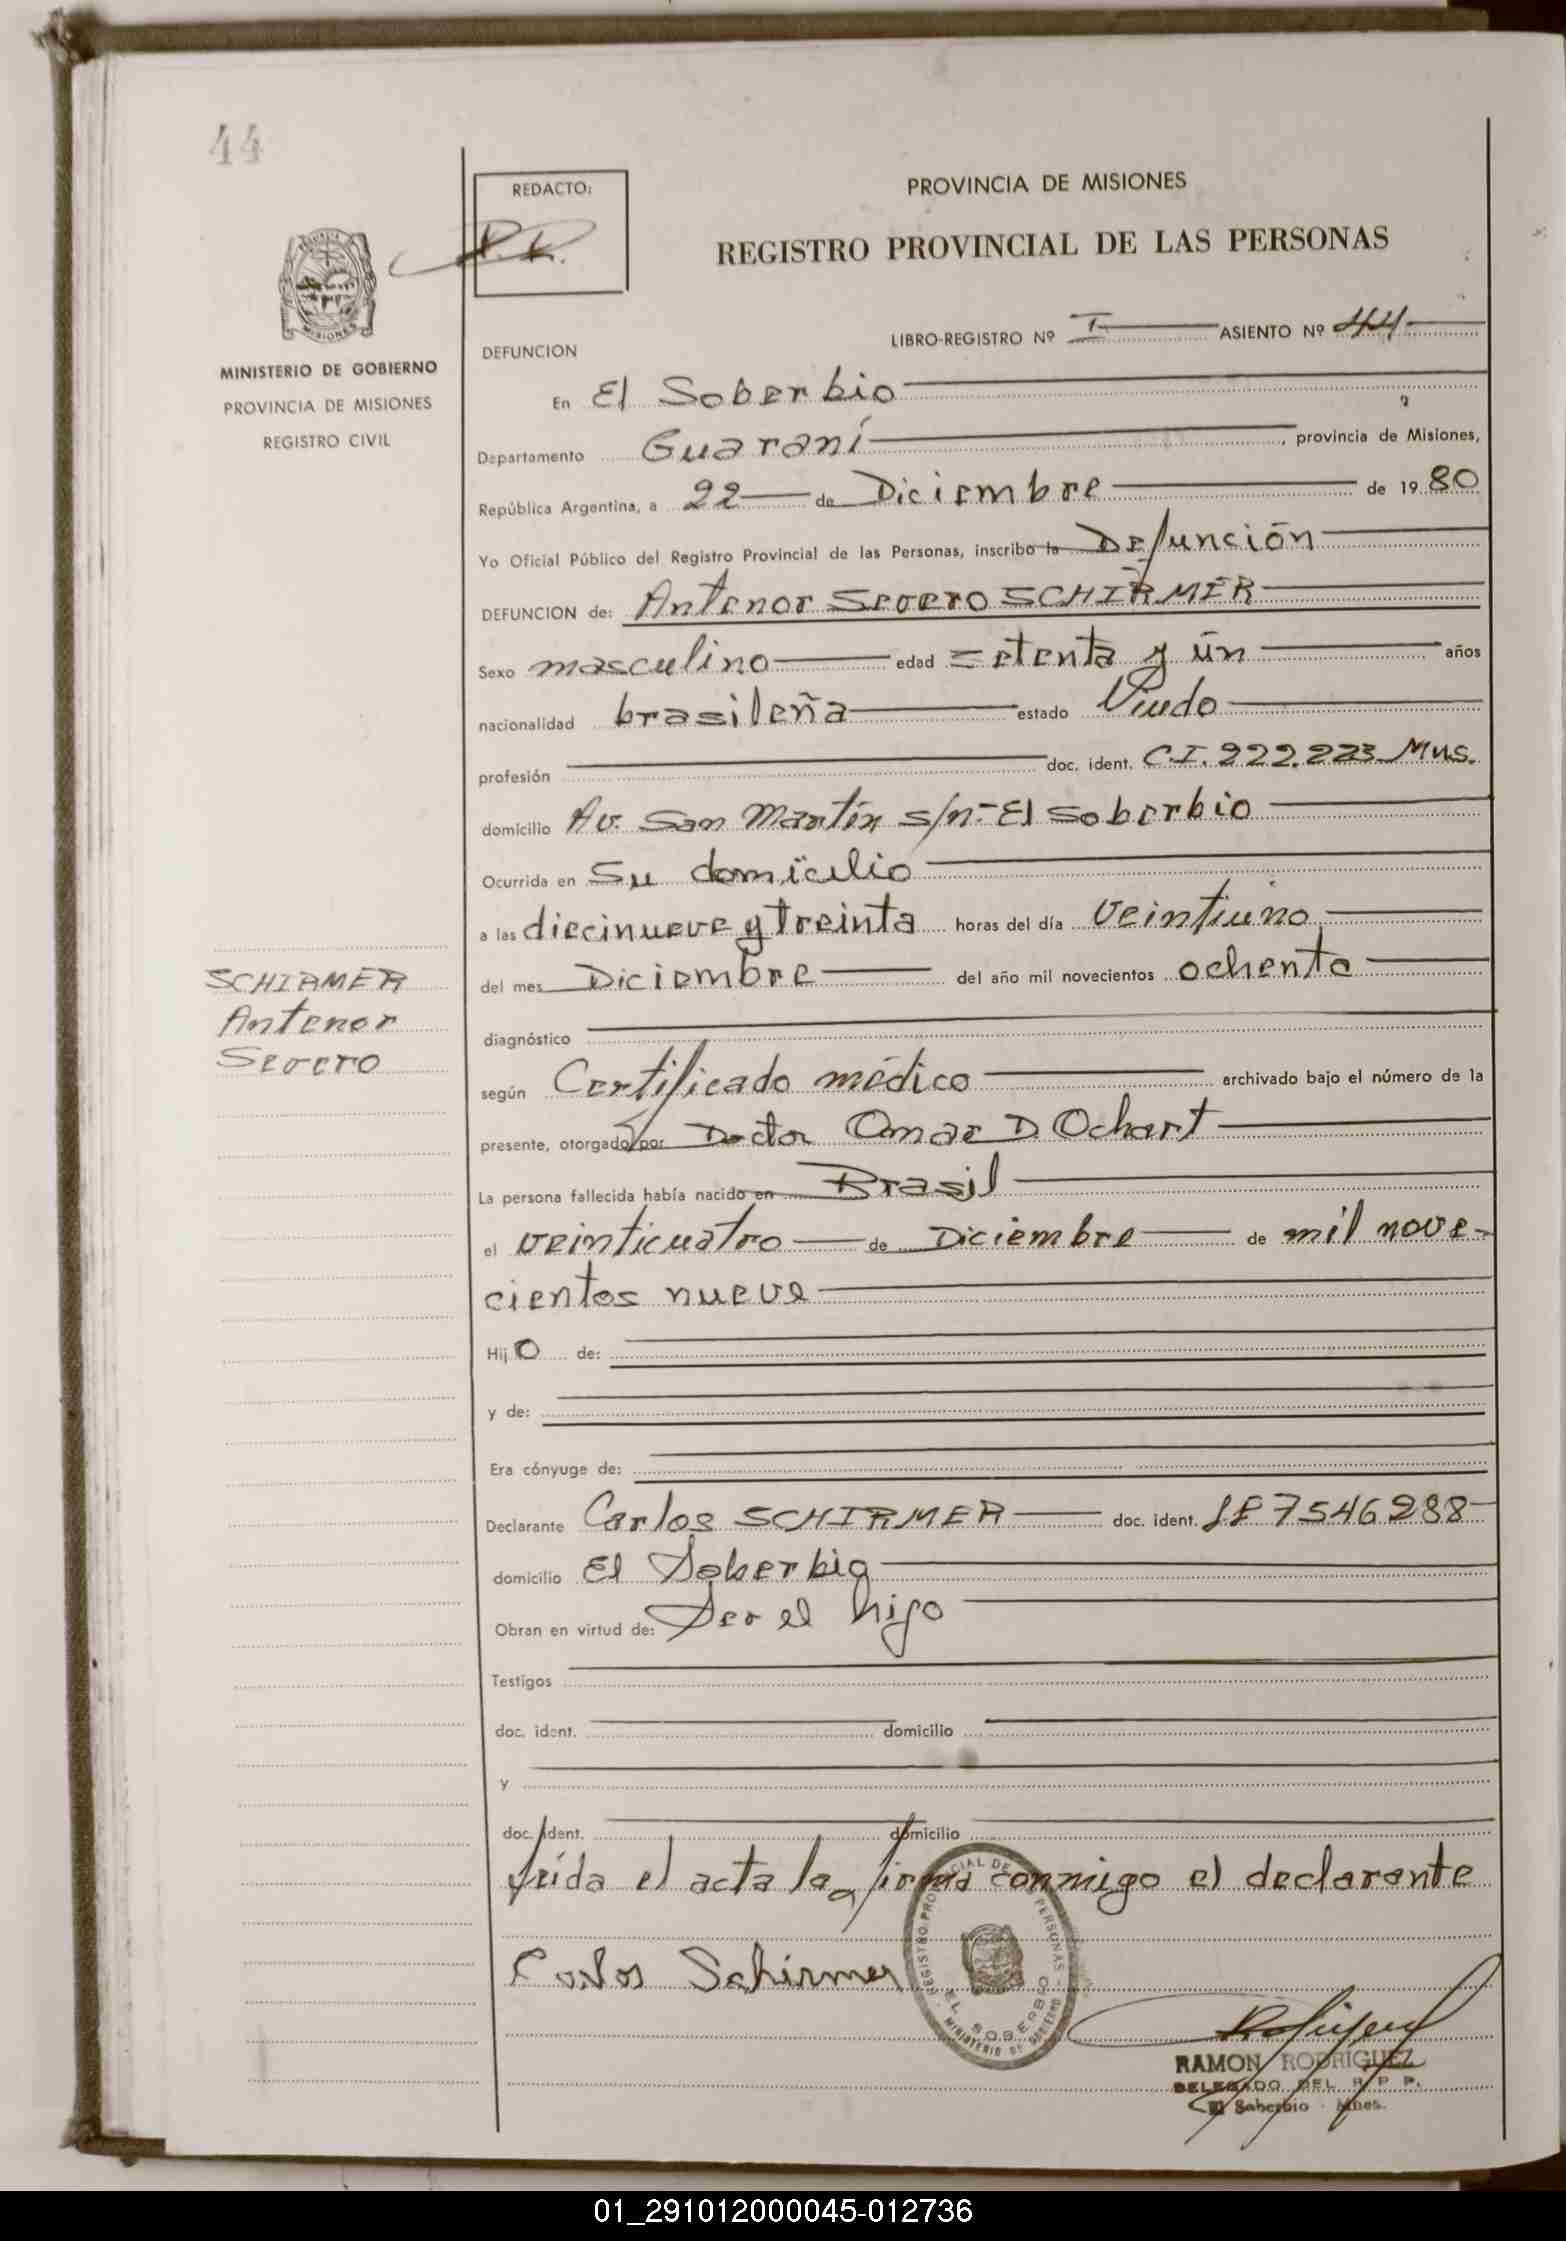 44
REDACTO:
R.R.
PROVINCIA DE MISIONES
REGISTRO PROVINCIAL DE LAS PERSONAS
MISIONES
MINISTERIO DE GOBIERNO
PROVINCIA DE MISIONES
REGISTRO CIVIL
LIBRO-REGISTRO Nº I ASIENTO Nº 44
DEFUNCION
En El Soberbio
Departamento Guaraní, provincia de Misiones,
República Argentina, a 22 de Diciembre de 1980
Yo Oficial Público del Registro Provincial de las Personas, inscribo la Defunción
DEFUNCION de: Antenor Severo SCHIRMER
Sexo masculino edad setenta y un años
nacionalidad brasileña estado Viudo
profesión doc. ident. C.I. 222.223 Mns.
domicilio Av. San Martín s/n.- El Soberbio
Ocurrida en Su domicilio
a las diecinueve y treinta horas del día veintiuno
del mes Diciembre del año mil novecientos ochenta
SCHIRMER
Antenor
Severo
diagnóstico
según Certificado médico archivado bajo el número de la
presente, otorgado por Doctor Omar D Ochart
La persona fallecida había nacido en Brasil
el veinticuatro de Diciembre de mil nove-
cientos nueve
Hij o de:
y de:
Era cónyuge de:
Declarante Carlos SCHIRMER doc. ident. LE 7546288
domicilio El Soberbio
Obran en virtud de: Ser el hijo
Testigos
doc. ident. domicilio
y
doc. ident. domicilio
leída el acta la firma conmigo el declarante
Carlos Schirmer
REGISTRO PROVINCIAL DE LAS PERSONAS - MINISTERIO DE GOBIERNO
EL SOBERBIO
RAMON RODRIGUEZ
DELEGADO DEL R P P.
El Soberbio - Mnes.
01_291012000045-012736